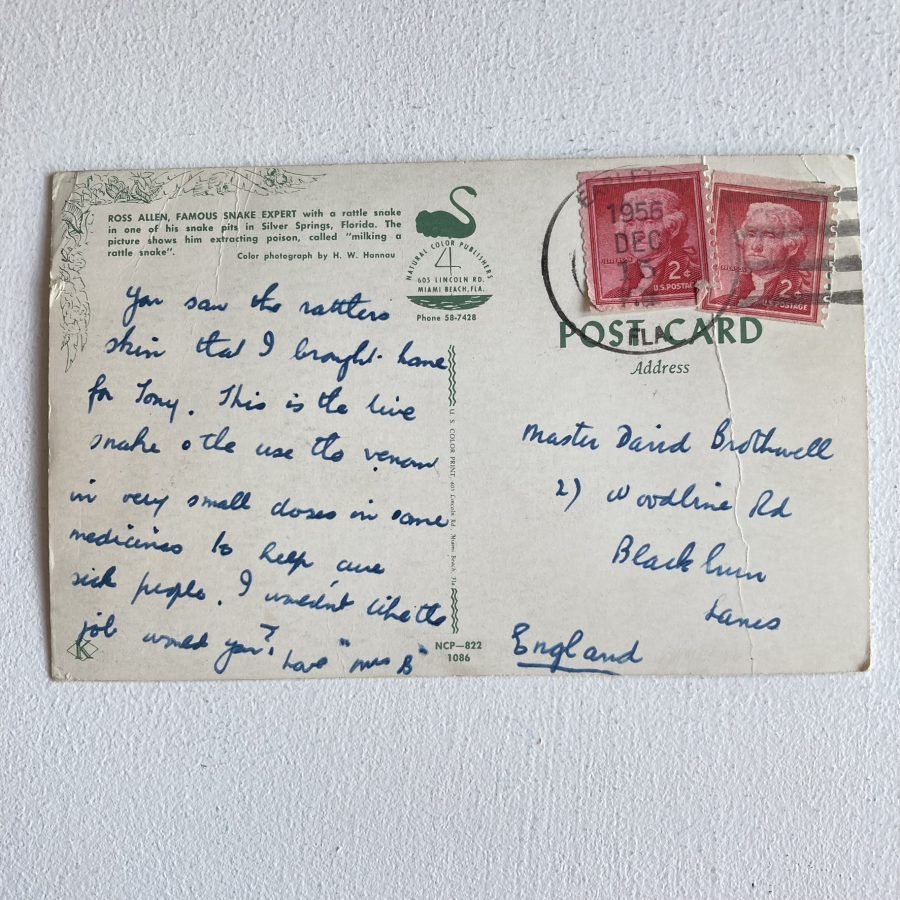 ROSS ALLEN, FAMOUS SNAKE EXPERT with a rattle snake
in one of his snake pits in Silver Springs, Florida. The
picture shows him extracting poison, called "milking a
rattle snake".
Color photograph by H. W. Hannau
You saw the rattlers
skin that I brought home
for Tony. This is the live
snake & the use the venom
in very small doses in some
medicines to help cure
sick people. I wouldn't like the
job would you?
Love "Mrs B"
K
NATURAL COLOR PUBLISHERS
4
605 LINCOLN RD.
MIAMI BEACH, FLA.
Phone 58-7428
U. S. COLOR PRINT, 605 Lincoln Rd., Miami Beach, Fla.
NCP—822
1086
1956
DEC
15
FLA
2¢
U.S. POSTAGE
2¢
U.S. POSTAGE
POST CARD
Address
Master David Brothwell
21 Woodbine Rd
Blackburn
Lancs
England